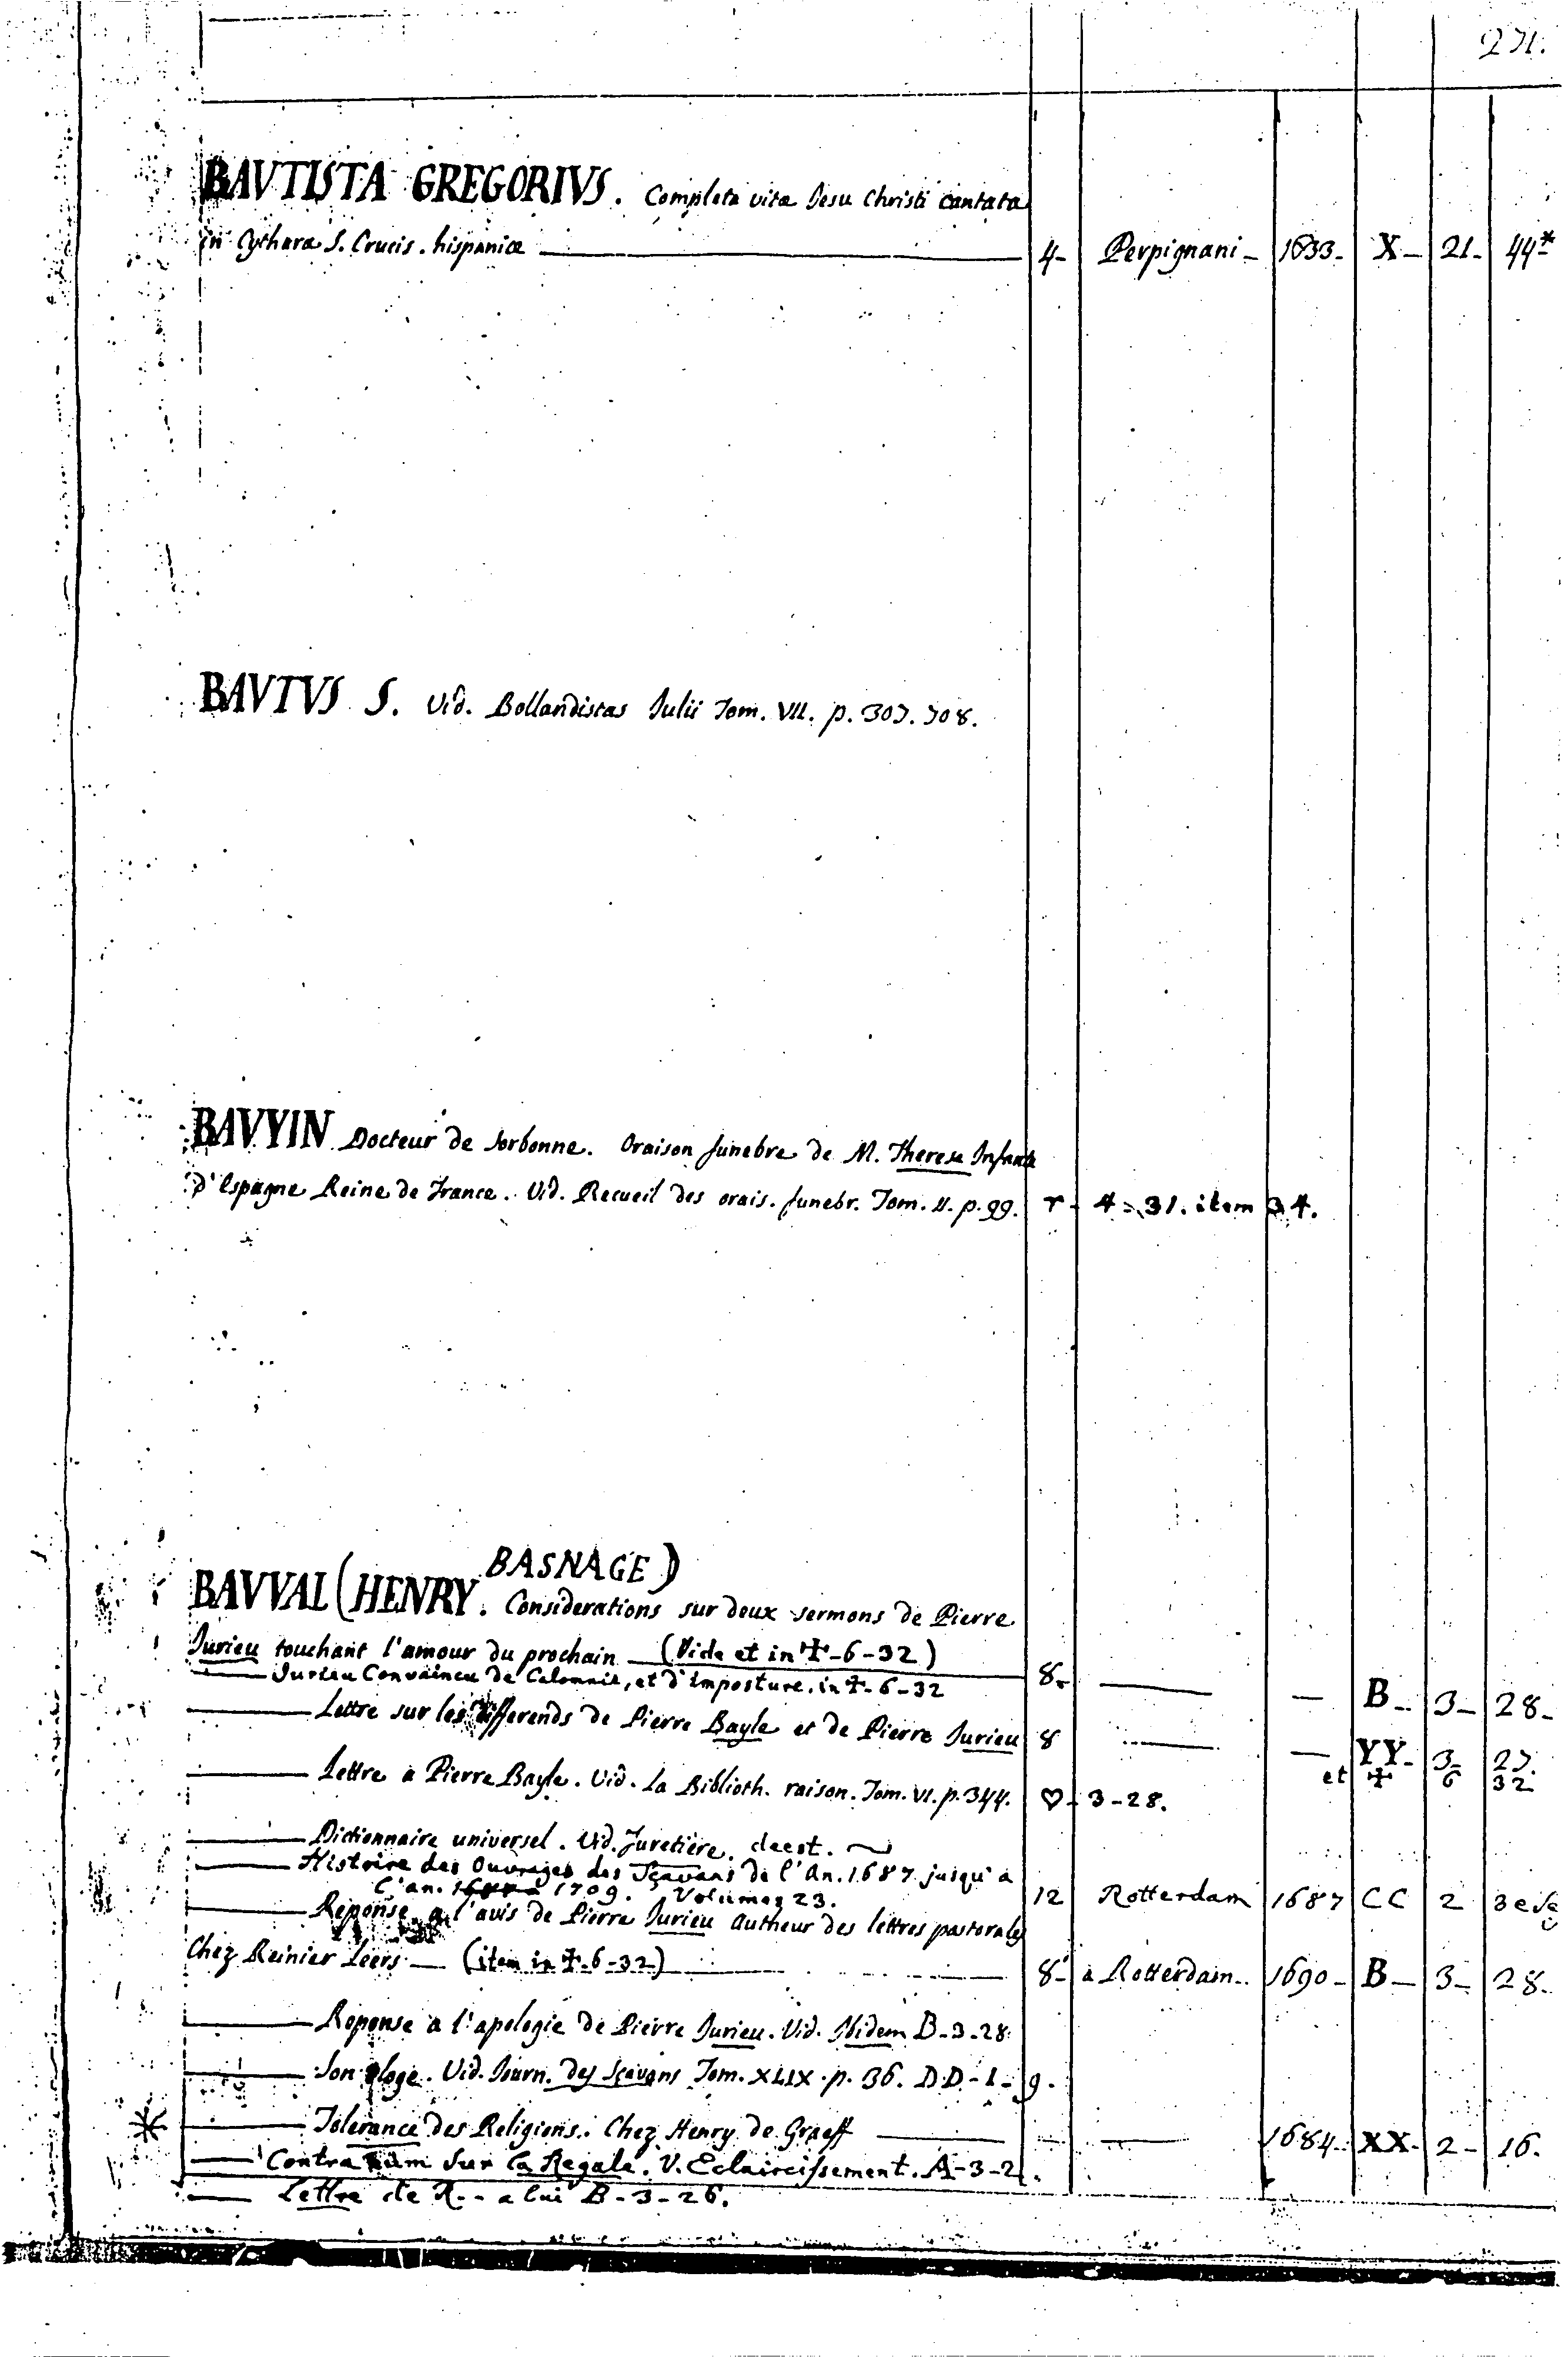 271.
BAVTISTA GREGORIVS. Completa vita Jesu Christi cantata
in Cythara S. Crucis. hispanice — 4- Perpignani - 1633- X- 21- 44*
BAVTVS S. Vid. Bollandistas Julii Tom. VII. p. 307. 708.
BAVYIN Docteur de Sorbonne. Oraison funebre de M. Therese Infante
d'Espagne Reine de France. Vid. Recueil des orais. funebr. Tom. II. p. 99. r- 4-31. item 34.
BASNAGE)
BAVVAL (HENRY. Considerations sur deux sermons de Pierre
Jurieu touchant l'amour du prochain — (Vide et in ✝-6-32) 8- — — B- 3- 28-
— Jurieu Convaincu de Calomnie, et d'imposture. in ✝-6-32
— Lettre sur les differends de Pierre Bayle et de Pierre Jurieu 8 — — YY- 3- 27.
et ✝ 6 32
— Lettre a Pierre Bayle. Vid. La Biblioth. raison. Tom. VI. p. 344. ♡-3-28.
— Dictionnaire universel. Vid. Furetiere. deest.
— Histoire des Ouvrages des Sçavans de l'An. 1687 jusqu'a
l'an. 1709. Volumes 23. 12 Rotterdam 1687 CC 2 3
— Reponse a l'avis de Pierre Jurieu Autheur des lettres pastorales
Chez Reinier Leers — (item in ✝-6-32) — 8- à Rotterdam- 1690- B- 3- 28-
— Reponse a l'apologie de Pierre Jurieu. Vid. Ibidem B-3-28.
— Son eloge. Vid. Journ. des Sçavans Tom. XLIX. p. 36. DD-1-9.
* — Tolerance des Religions. Chez Henry de Graeff — — 1684- XX- 2- 16.
— Contra Eum Sur la Regale. V. Eclaircissement. A-3-21.
— Lettre de R-- a lui B-3-26.